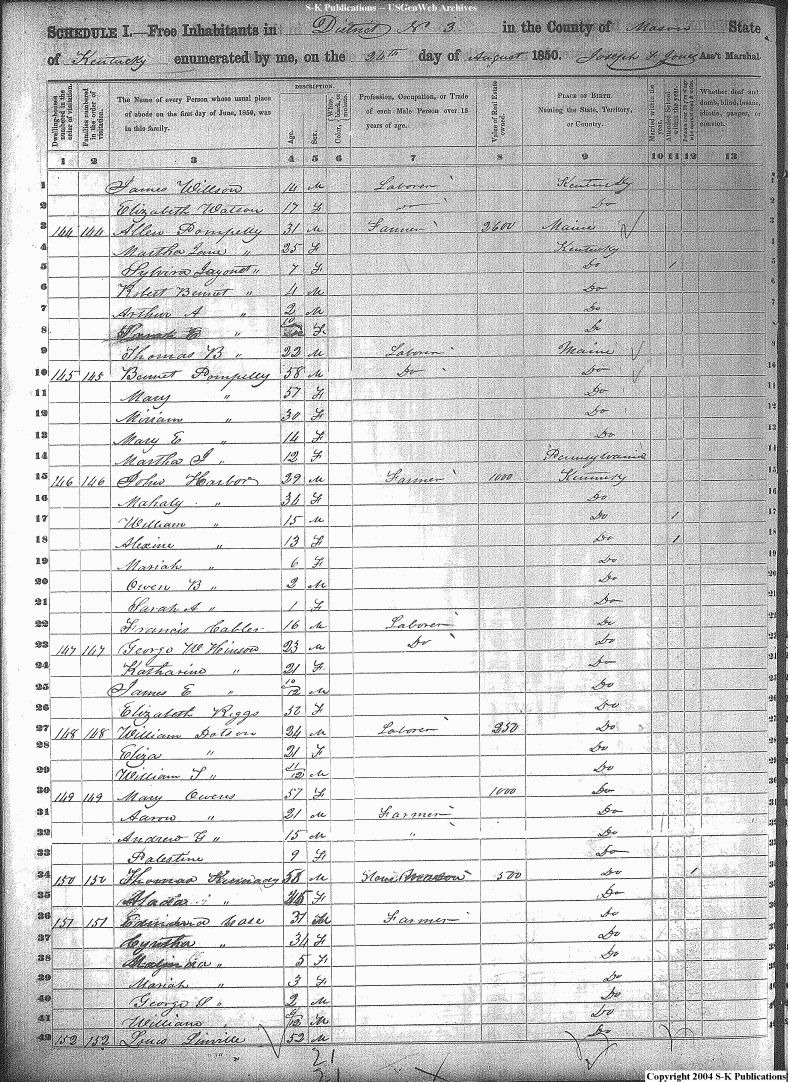 S-K Publications -- USGenWeb Archives
SCHEDULE I.—Free Inhabitants in District No 3 in the County of Mason State
of Kentucky enumerated by me, on the 24th day of August 1850. Joseph F. Jones Ass't Marshal
Dwelling-houses numbered in the order of visitation. Families numbered in the order of visitation. The Name of every Person whose usual place of abode on the first day of June, 1850, was in this family. DESCRIPTION. Age. Sex. Color, White, black, or mulatto. Profession, Occupation, or Trade of each Male Person over 15 years of age. Value of Real Estate owned. PLACE OF BIRTH. Naming the State, Territory, or Country. Married within the year. Attended School within the year. Whether deaf and dumb, blind, insane, idiotic, pauper, or convict.
1 2 3 4 5 6 7 8 9 10 11 12 13
1 James Willson 14 M Laborer Kentucky 1
2 Elizabeth Watson 17 F Do 2
3 144 144 Allen Pompelly 31 M Farmer 2600 Maine 3
4 Martha Jane " 25 F Kentucky 4
5 " 7 F Do 1 5
6 Robert Bennet " 4 M Do 6
7 Arthur A " 2 M Do 7
8 Sarah E " 10 F Do 8
9 Thomas B " 22 M Laborer Maine 9
10 145 145 Bennet Pompelly 58 M Do Do 10
11 Mary " 57 F Do 11
12 Miriam " 30 F Do 12
13 Mary E " 14 F Do 13
14 Martha J " 12 F Pennsylvania 14
15 146 146 John Harbor 29 M Farmer 1000 Kentucky 15
16 Mahaly " 34 F Do 16
17 William " 15 M Do 1 17
18 Alexine " 13 F Do 1 18
19 Mariah " 6 F Do 19
20 Owen B " 2 M Do 20
21 Sarah A " 1 F Do 21
22 Francis Cabler 16 M Laborer Do 22
23 147 147 George W Hinson 23 M Do Do 23
24 Katharine " 21 F Do 24
25 James E " 10/12 M Do 25
26 Elizabeth Riggs 52 F Do 26
27 148 148 William Dotson 24 M Laborer 250 Do 27
28 Eliza " 21 F Do 28
29 William S " 11/12 M Do 29
30 149 149 Mary Owens 57 F 1000 Do 30
31 Aaron " 21 M Farmer Do 31
32 Andrew C " 15 M " Do 32
33 Palestine 9 F Do 33
34 150 150 Thomas Kennady 58 M Stone 500 Do 1 34
35 " F Do 35
36 151 151 Case 31 M Farmer Do 36
37 Cyntha " 34 F Do 37
38 " 5 F Do 38
39 Mariah " 3 F Do 39
40 George P " 2 M Do 40
41 William " /12 M Do 41
42 152 152 Louis Linville 52 M Do 42
21
21
Copyright 2004 S-K Publications